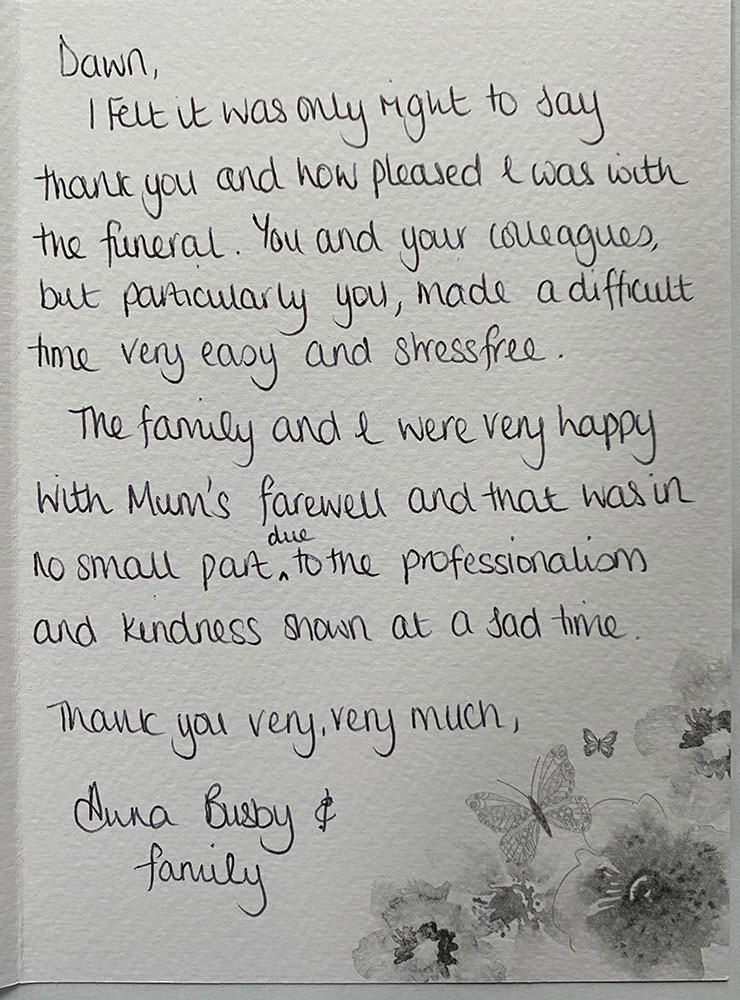 Dawn,
I Felt it was only right to say
thank you and how pleased I was with
the funeral. You and your colleagues,
but particularly you, made a difficult
time very easy and stressfree.
The family and I were very happy
With Mum's farewell and that was in
no small part due to the professionalism
and kindness shown at a sad time.
Thank you very, very much,
Anna Busby &
family